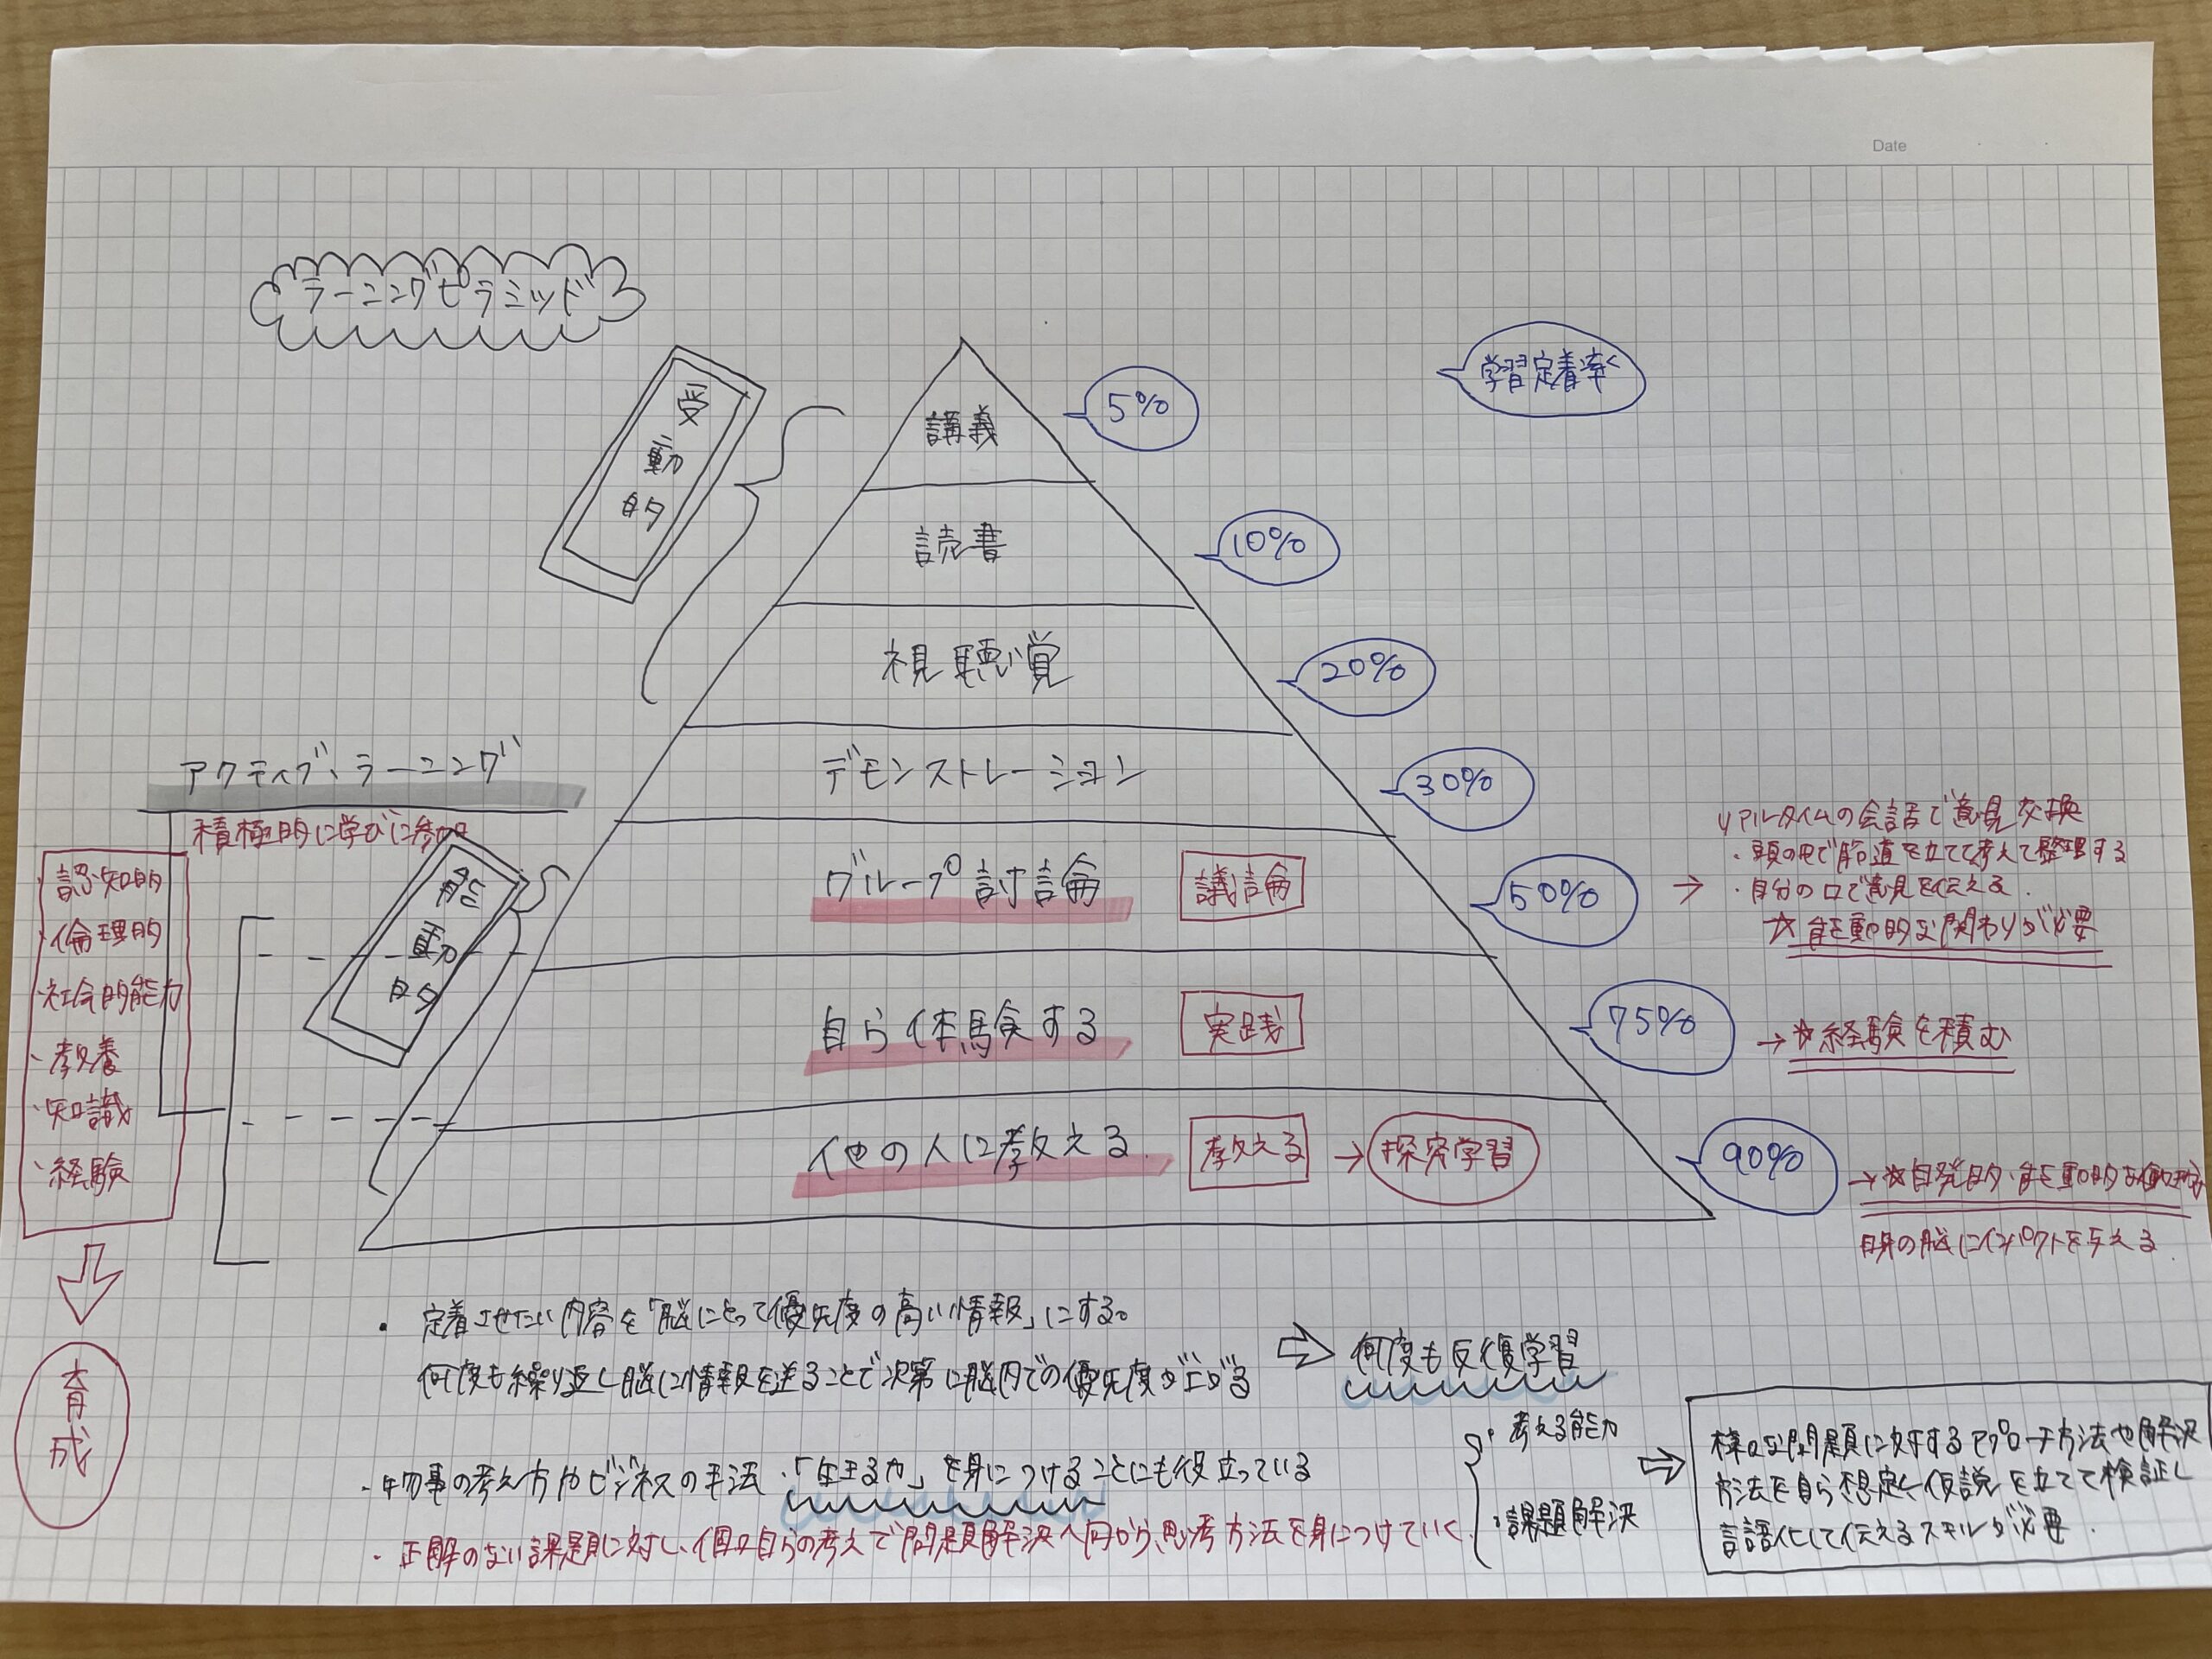 Date
ラーニングピラミッド
学習定着率
受動的
講義
5%
読書
10%
視聴覚
20%
デモンストレーション
30%
アクティブ・ラーニング
積極的に学びに参加
・認知的
・倫理的
・社会的能力
・教養
・知識
・経験
育成
能動的
グループ討論
議論
50%
→
リアルタイムの会話で意見交換
・頭の中で筋道を立てて考えて整理する
・自分の口で意見を伝える.
☆能動的な関わりが必要
自ら体験する
実践
75%
→☆経験を積む
他の人に教える.
教える
→探究学習
90%
→☆自発的・能動的な
自身の脳にインパクトを与える.
・定着させたい内容を「脳にとって優先度の高い情報」にする。
何度も繰り返し脳に情報を送ることで次第に脳内での優先度が上がる
⇒何度も反復学習
・物事の考え方やビジネスの手法・「生きる力」を身につけることにも役立っている
・正解のない課題に対し、個々自らの考えで問題解決へ向かう思考方法を身につけていく.
・考える能力
・課題解決
⇒
様々な問題に対するアプローチ方法や解決
方法を自ら想定し仮説を立てて検証し
言語化して伝えるスキルが必要.